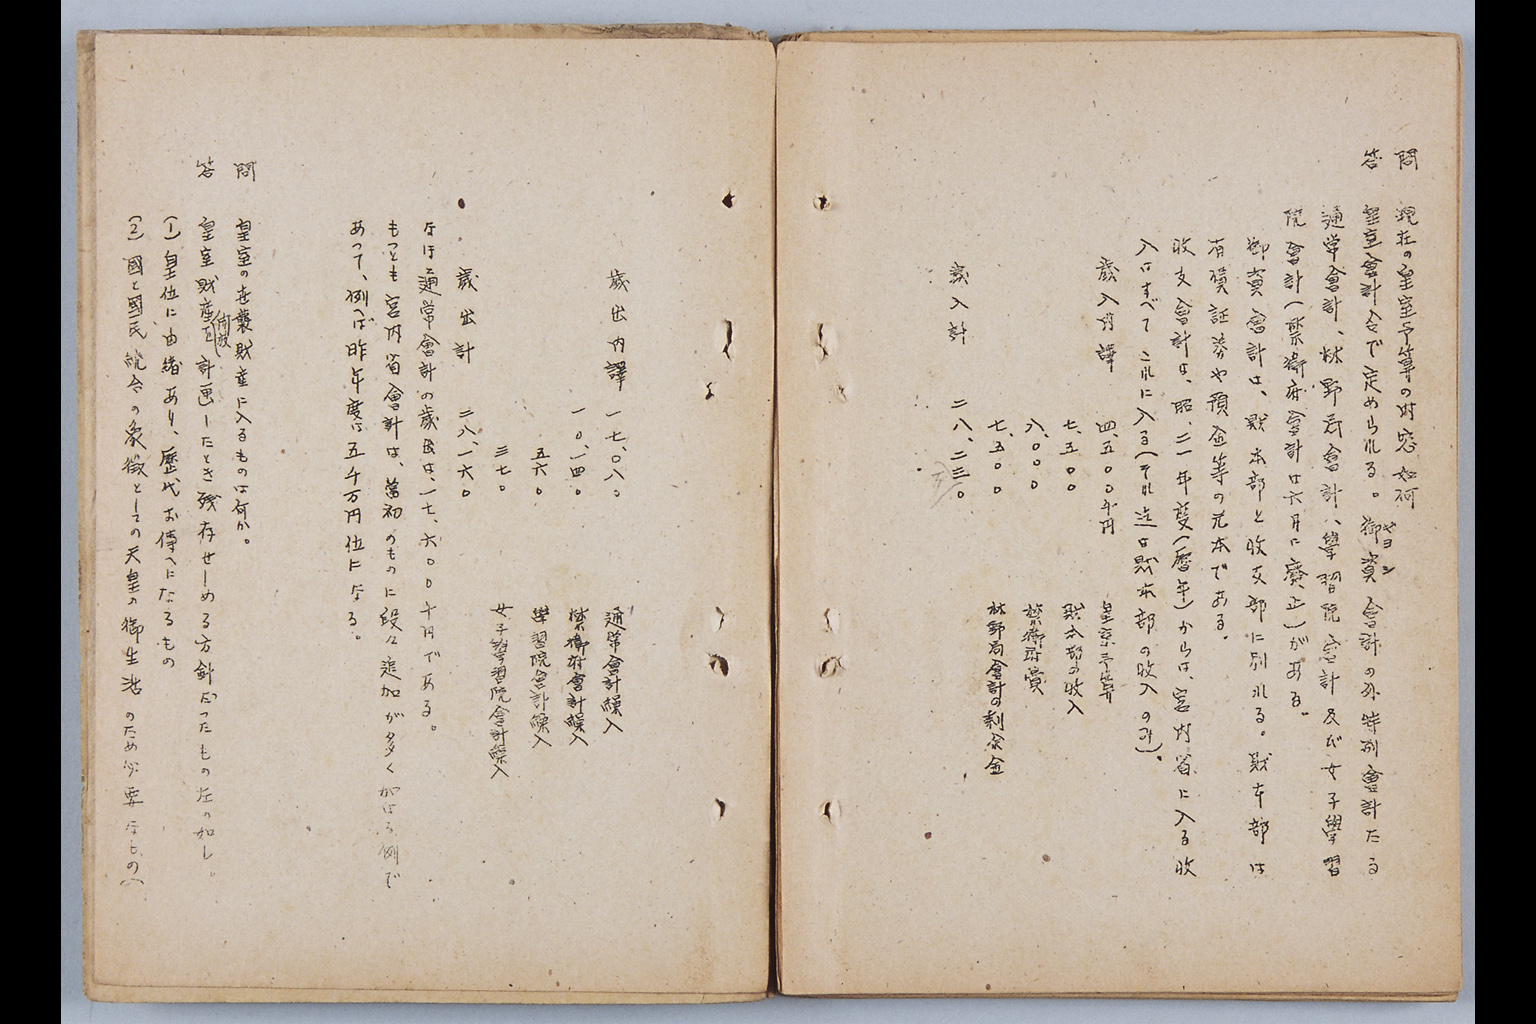 問 現在の皇室予算の状态如何
答 皇室會計令で定められる。御資會計の外特別會計たる
ヤヨシ
通常會計、林野局會計、學習院會計及び女子學習
院會計(禁衛府會計は六月に廢止)がある。
御資會計は、財本部と收支部に別れる。財本部は
有價証券や預金等の元本である。
收支會計は、昭、二一年度(暦年)からは、宮内省に入る收
入はすべてこれに入る(それ迄は財本部の收入のみ)。
歳入内譯 四、五〇〇千円 皇室予算
七、五〇〇 財本部の收入
八、〇〇〇 禁衛府費
七、五〇〇 林野局會計の剰余金
歳入計 二八、二三〇
歳出内譯 一七、〇八〇 通常會計繰入
一〇、一四〇 禁衛府會計繰入
五六〇 學習院會計繰入
三七〇 女子學習院會計繰入
歳出計 二八、一六〇
なほ通常會計の歳出は、一七、六〇〇千円である。
もつとも宮内省會計は、當初のものに段々追加が多く加はる例で
あつて、例へば昨年度は五千万円位になる。
問 皇室の世襲財産に入るものは何か。
答 皇室財産を計画したとき残存せしめる方針だつたもの左の如し。
(1)皇位に由緒あり、歴代お傳へになるもの
(2)國と國民統合の象徴としての天皇の御生活のため必要なもの(